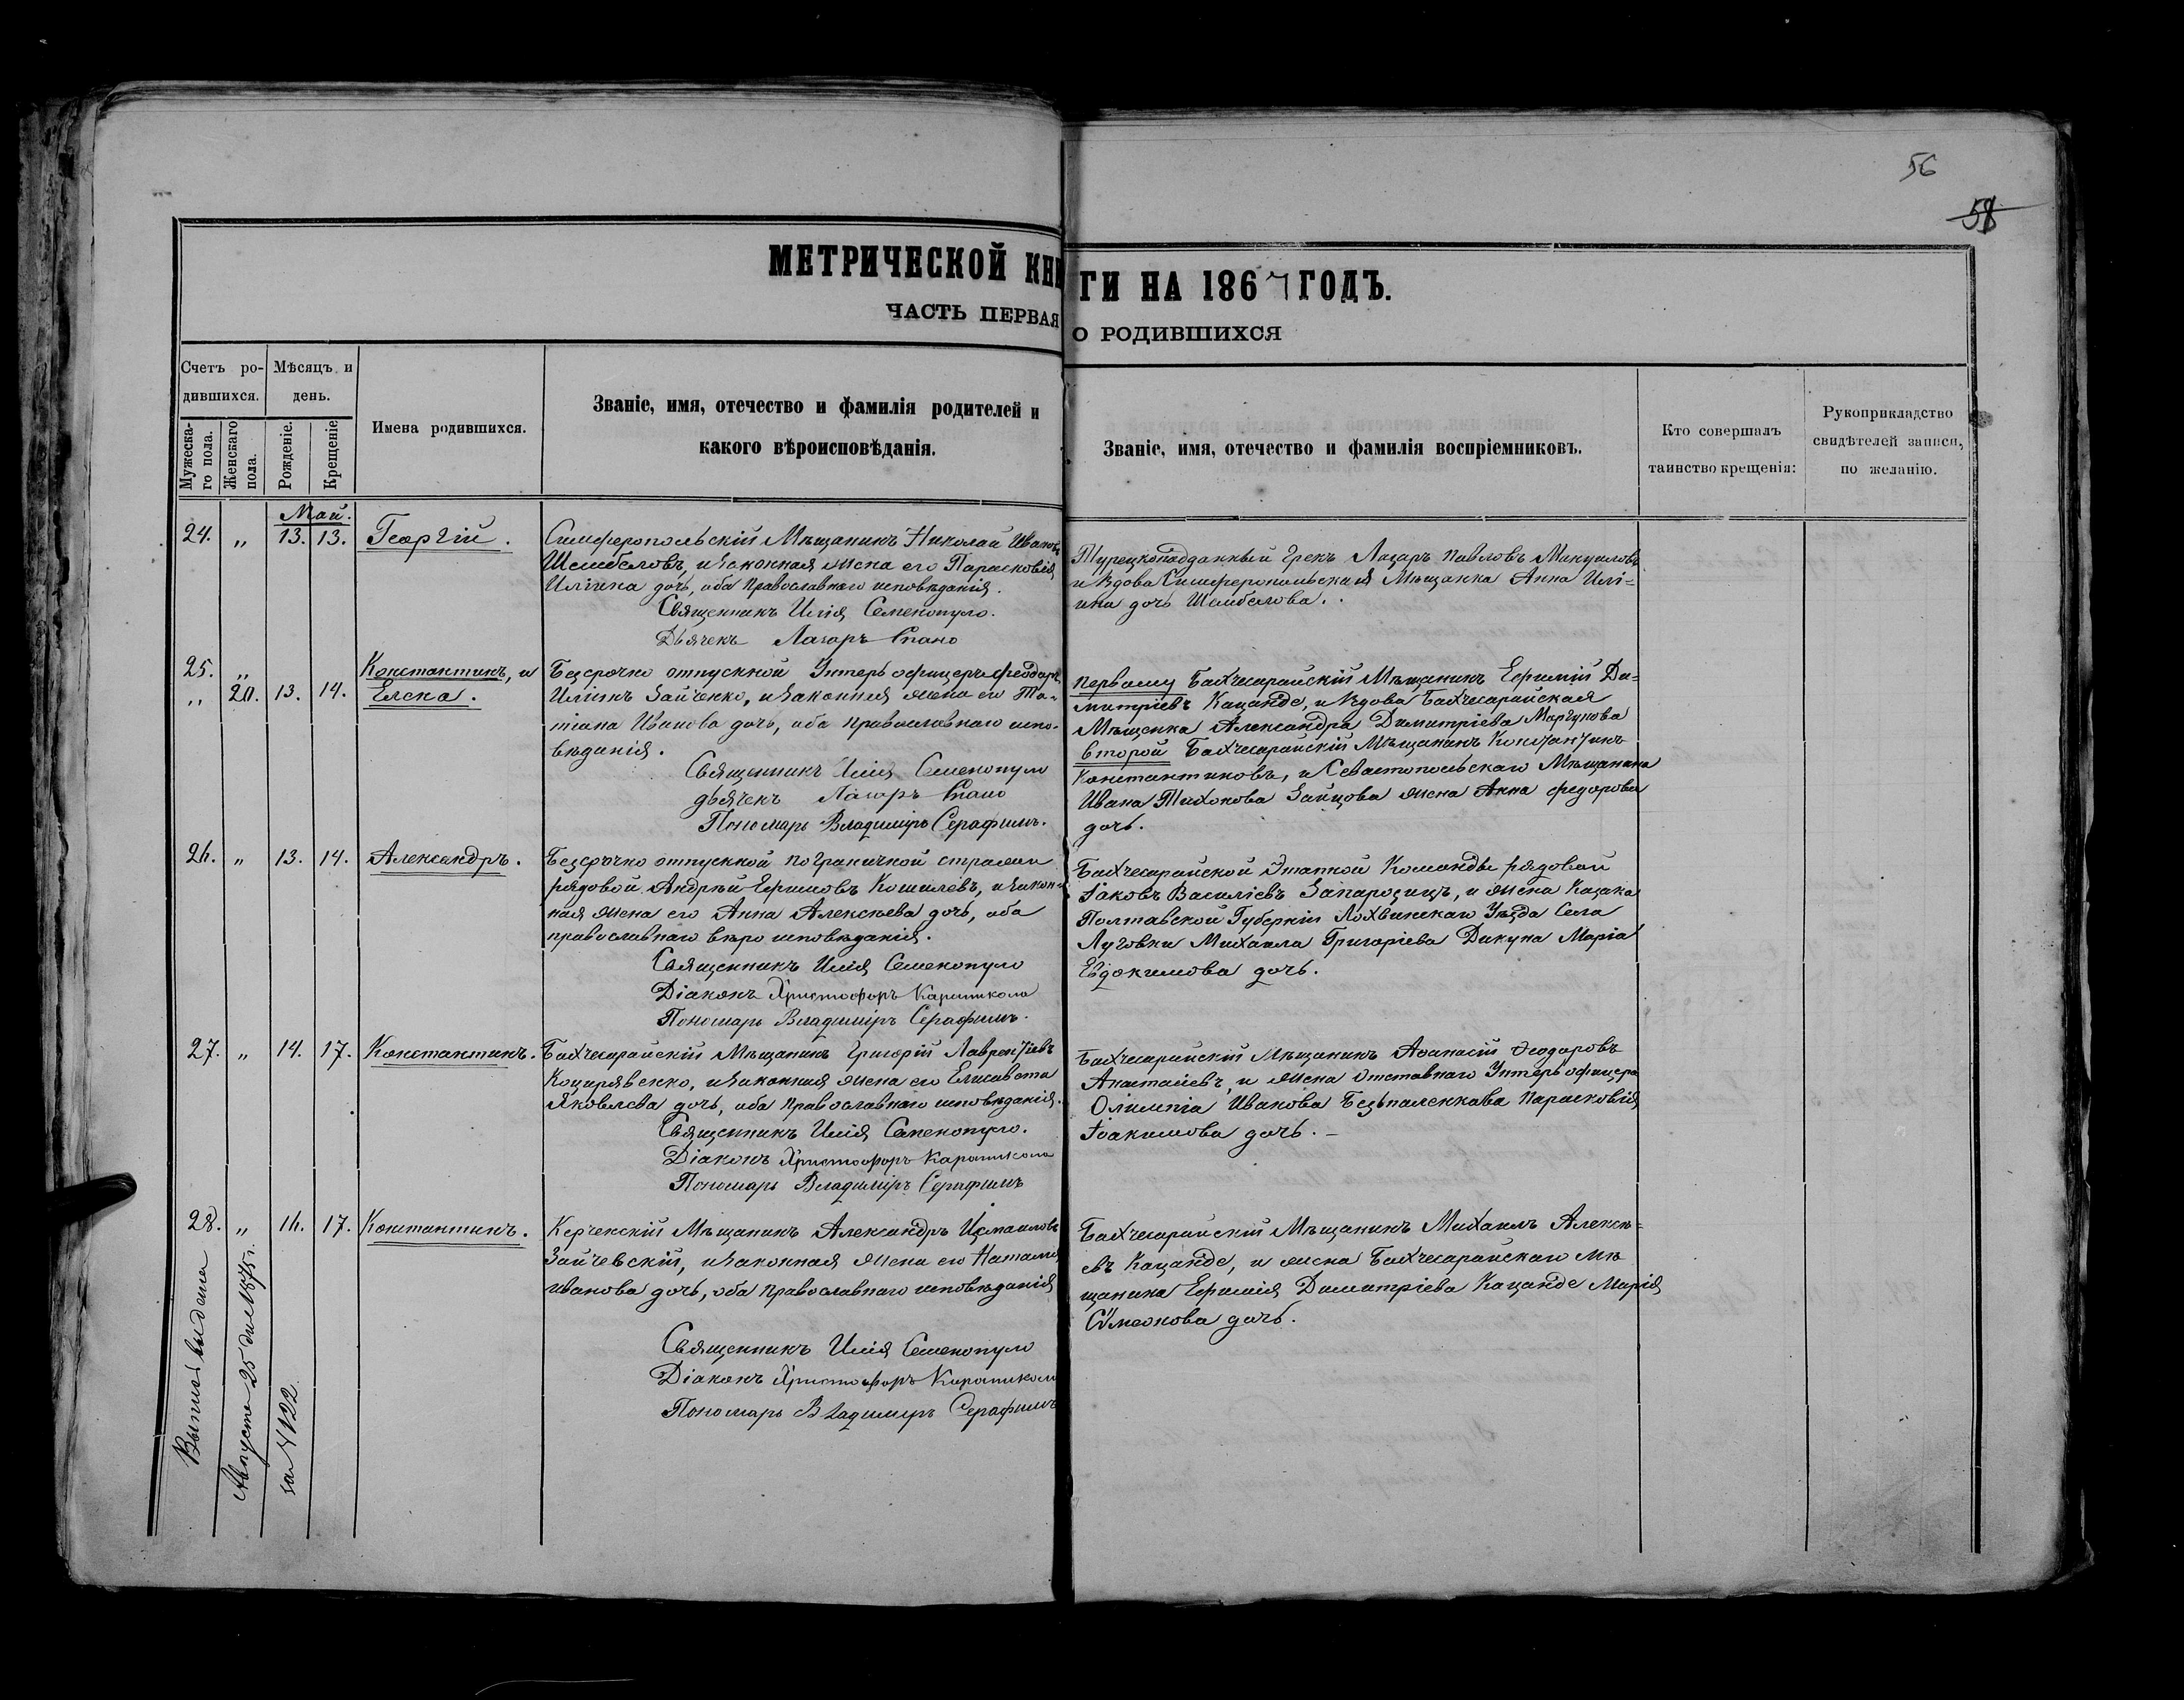 56
58
МЕТРИЧЕСКОЙ КНИГИ НА 1867 ГОДЪ.
ЧАСТЬ ПЕРВАЯ О РОДИВШИХСЯ
Счетъ ро-
дившихся.
Мужеска-
го пола.
Женскаго
пола.
Мѣсяцъ и
день.
Рожденіе.
Крещеніе
Имена родившихся.
Званіе, имя, отечество и фамилія родителей и
какого вѣроисповѣданія.
Званіе, имя, отечество и фамилія воспріемниковъ.
Кто совершалъ
таинство крещенія:
Рукоприкладство
свидѣтелей записи,
по желанію.
Май.
24. „ 13. 13. Георгій.
Симферопольскій Мѣщанинъ Николай Ивановъ
Шембеловъ, и законная жена его Парасковія
Иліина дочь, оба православнаго исповѣданія.
Священникъ Илія Семенопуло.
Дьячекъ Лазарь Спано
Турецкоподданный Грекъ Лазарь Павловъ Мануиловъ
и вдова Симферопольская Мѣщанка Анна Илі=
ина дочь Шембелова.
25. „
„ 20. 13. 14. Константинъ, и
Елена.
Безсрочно отпускной Унтеръ офицеръ Феодоръ
Иліинъ Зайченко, и законная жена его Та-
тіана Иванова дочь, оба православнаго испо-
вѣданія.
Священникъ Илія Семенопуло
дьячекъ Лазарь Спано
Пономарь Владиміръ Серафимъ.
первому Бахчисарайскій Мѣщанинъ Ефимій Ди=
митріевъ Кацанде, и вдова Бахчесарайская
Мѣщанка Александра Димитріева Маргунова
второй Бахчесарайскій Мѣщанинъ Константинъ
Константиновъ, и Севастопольскаго Мѣщанина
Ивана Тихонова Зайцова жена Анна Федорова
дочь.
26. „ 13. 14. Александръ.
Безсрочно отпускной пограничной стражи
рядовой Андрѣй Ефимовъ Кошилевъ, и закон-
ная жена его Анна Алексѣева дочь, оба
православнаго вѣроисповѣданія.
Священникъ Илія Семенопуло
Діаконъ Христофоръ Карапикола
Пономарь Владиміръ Серафимъ.
Бахчесарайской Этапной Команды рядовой
Іаковъ Василіевъ Запарозицъ, и жена Казака
Полтавской Губерніи Лохвинскаго Уѣзда Села
Луговки Михаила Григоріева Дикуна Марія
Евдокимова дочь.
27. „ 14. 17. Константинъ.
Бахчесарайскій Мѣщанинъ Григорій Лаврентіевъ
Коцурявенко, и законная жена его Елисавета
Яковлева дочь, оба православнаго исповѣданія.
Священникъ Илія Семенопуло.
Діаконъ Христофоръ Карапикола
Пономарь Владиміръ Серафимъ
Бахчесарайскій Мѣщанинъ Аѳанасій Ѳеодоровъ
Анастасіевъ, и жена Отставнаго Унтеръ офицера
Олімпіа Иванова Безьпаленкова Парасковія
Іоакимова дочь. —
28. „ 16. 17. Константинъ.
Керченскій Мѣщанинъ Александръ Измаиловъ
Зайчевскій, и законная жена его Наталія
Иванова дочь, оба православнаго исповѣданія
Священникъ Илія Семенопуло
Діаконъ Христофоръ Карапикола
Пономарь Владиміръ Серафимъ
Бахчесарайскій Мѣщанинъ Михаилъ Алексѣ=
евъ Кацанде, и жена Бахчесарайскаго Мѣ
щанина Ефимія Димитріева Кацанде Марія
Сѵмеонова дочь.
Выпись выдана
Августа 25 дня 1875 г.
за № 22